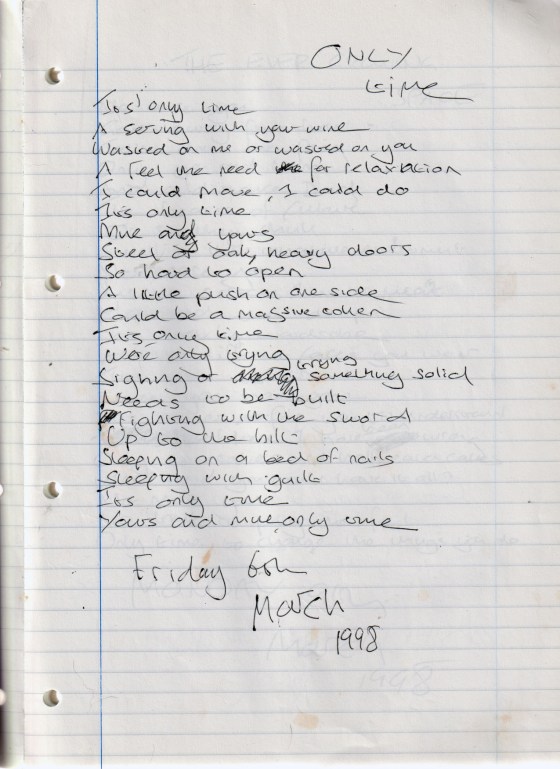 ONLY
time
Its' only time
A string with your wine
Wasted on me or wasted on you
A feel the need for relaxation
I could move, I could do
It's only time
Mine and yours
Steel or oak, heavy doors
So hard to open
A little push on one side
Could be a massive
It's only time
We're only trying
Signing or trying something solid
Needs to be built
Fighting with the sword
Up to the hilt
Sleeping on a bed of nails
Sleeping with guilt
It's only time
Yours and mine, only time
Friday 6th
March
1998